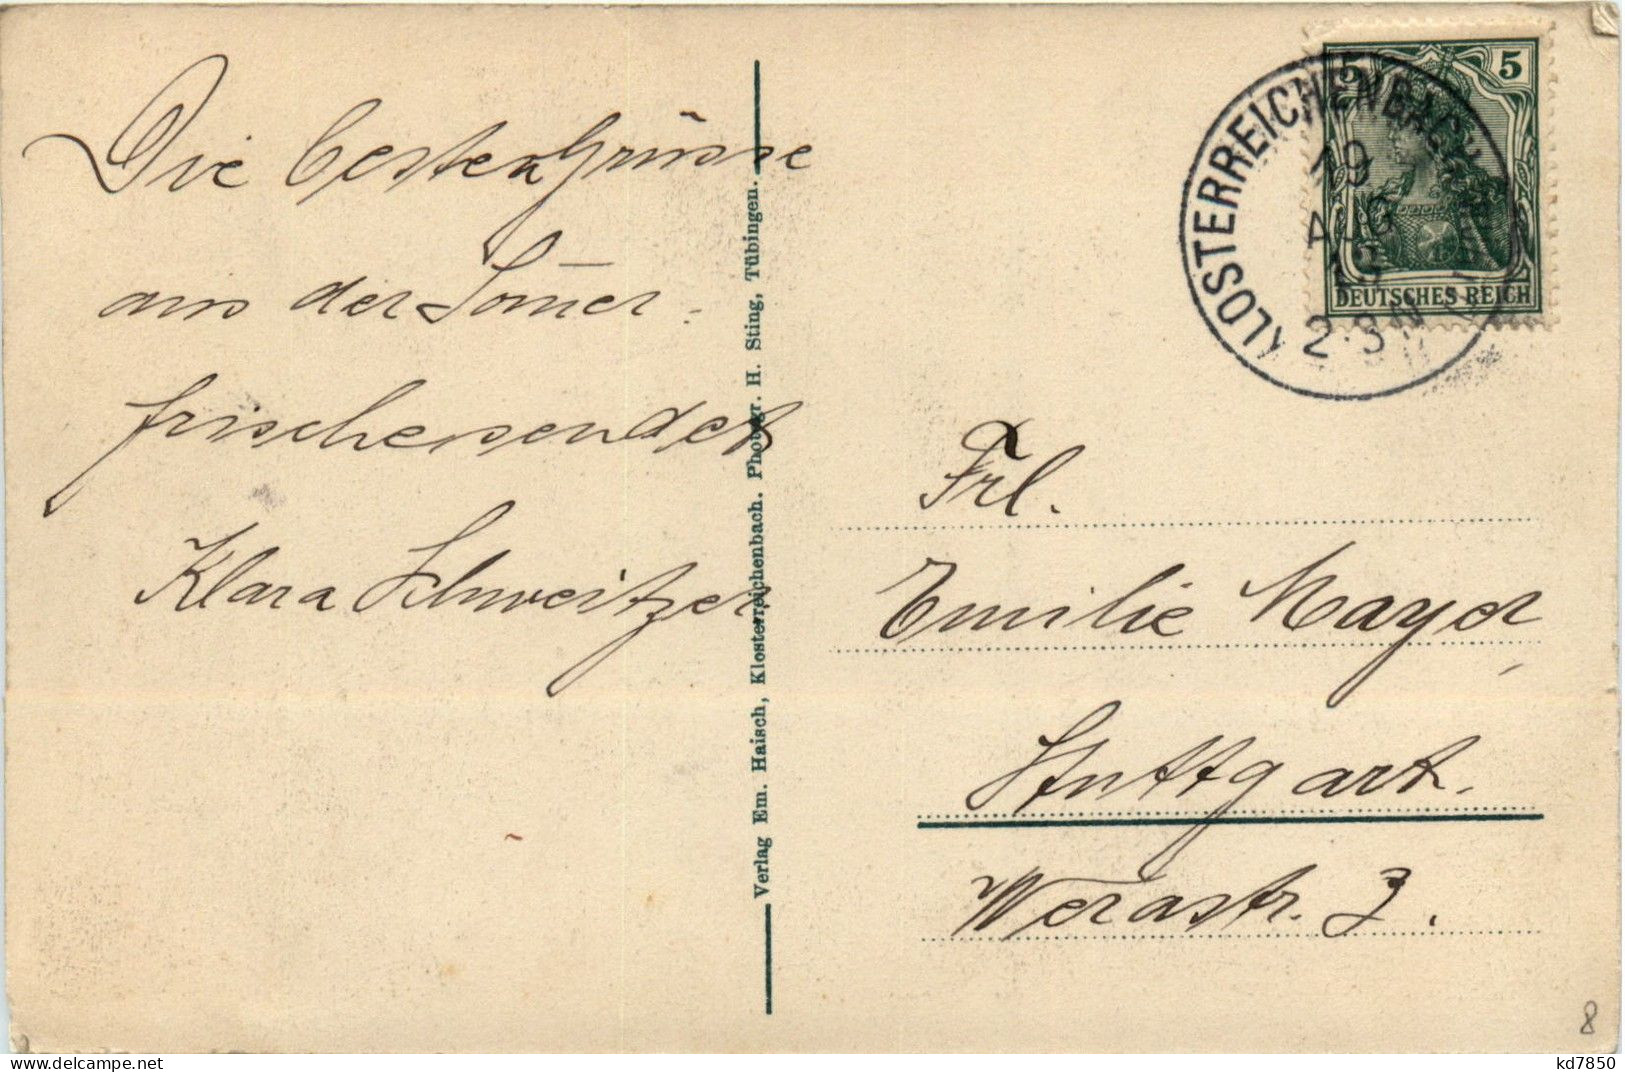 Die besten Grüsse
aus der Som̄er-
frische sendet
Klara Schweitzer
Verlag Em. Haisch, Klosterreichenbach. Photogr. H. Sting, Tübingen.
5 5
DEUTSCHES REICH
KLOSTERREICHENBACH
19
AUG
2-3N
Frl.
Emilie Mayer,
Stuttgart.
Werastr. 3.
8
www.delcampe.net
kd7850